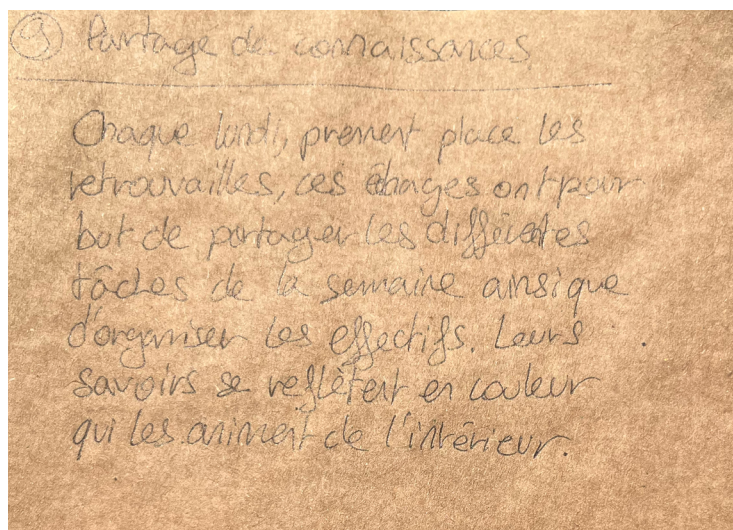 ⑨ Partage de connaissances
Chaque lundi, prennent place les
retrouvailles, ces échanges ont pour
but de partager les différentes
tâches de la semaine ainsi que
d'organiser les effectifs. Leurs
savoirs se reflètent en couleur
qui les animent de l'intérieur.